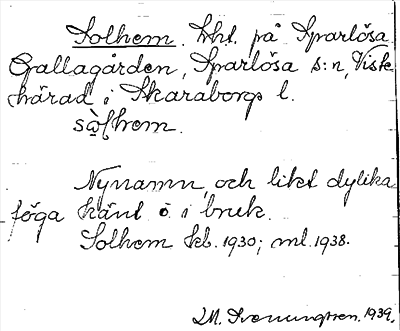 Solhem. Lht. på Sparlösa
Gallagården, Sparlösa s:n, Viste
härad i Skaraborgs l.
sò̀lhem.
Nynamn, och likt dylika
föga känt o. i bruk.
Solhem kb. 1930; ml. 1938.
1939.